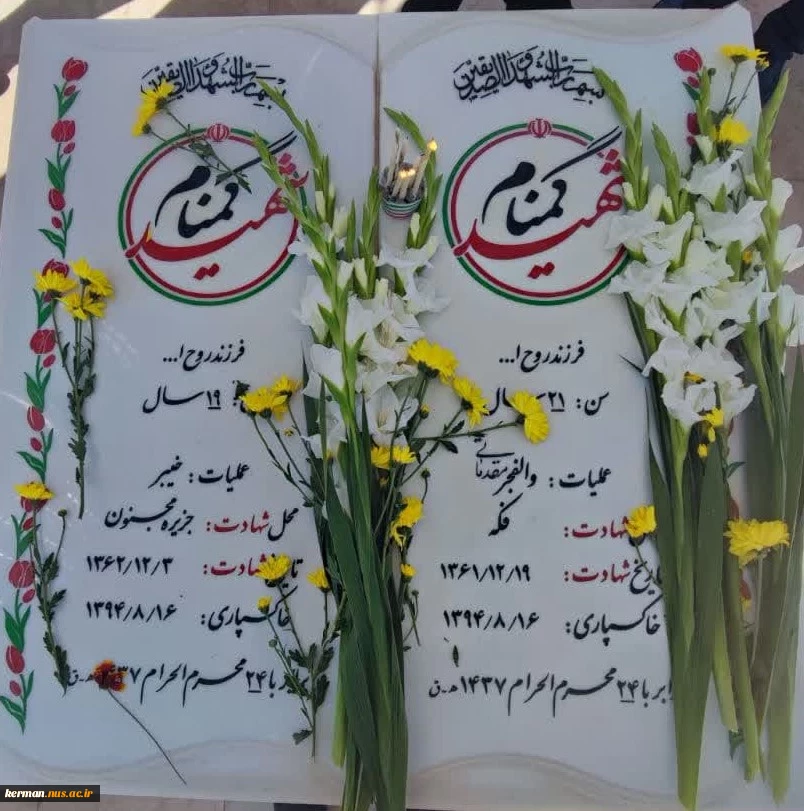 شهید گمنام
فرزند روح ا...
سن: ۲۱ سال
عملیات: والفجر مقدماتی
شهادت: فکه
تاریخ شهادت: ۱۳۶۱/۱۲/۱۹
خاکسپاری: ۱۳۹۴/۸/۱۶
برابر با ۲۴ محرم الحرام ۱۴۳۷ ه-ق
شهید گمنام
فرزند روح ا...
۱۹ سال
عملیات: خیبر
محل شهادت: جزیره مجنون
تاریخ شهادت: ۱۳۶۲/۱۲/۳
خاکسپاری: ۱۳۹۴/۸/۱۶
برابر با ۲۴ محرم الحرام ۱۴۳۷ ه-ق
kerman.nus.ac.ir